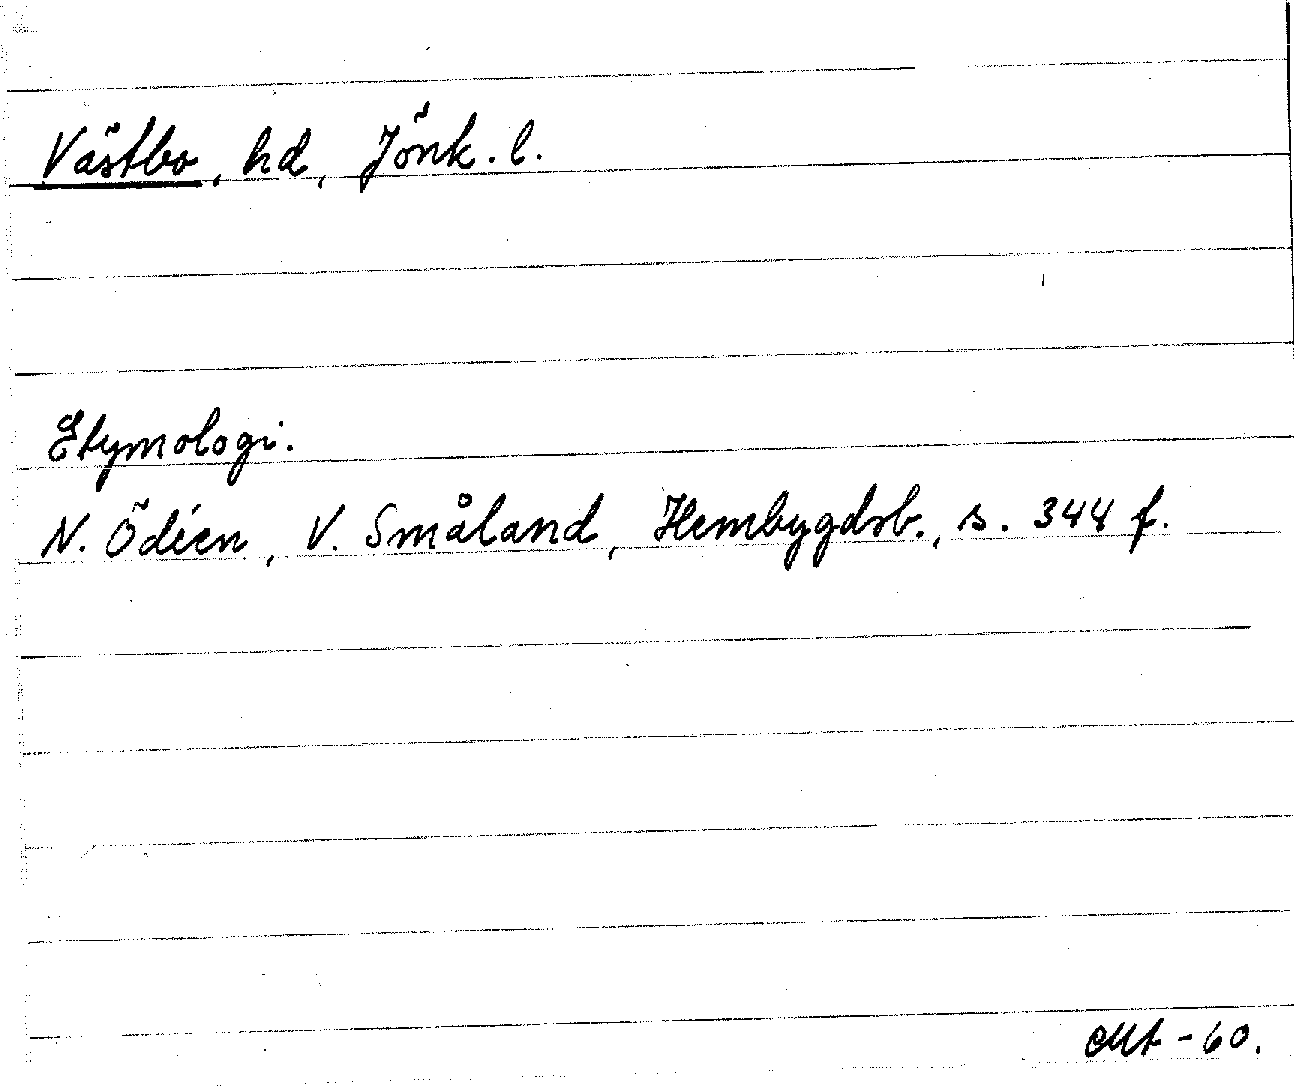 Västbo, hd, Jönk. l.
Etymologi.
N. Ödéen, V. Småland, Hembygdsb., s. 344 f.
-60.